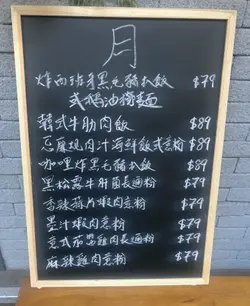 月
炸西班牙黑毛豬扒飯 $79
式鵝油撈麵
韓式牛肋肉飯 $89
肉汁海鮮飯式意粉 $89
咖哩炸黑毛豬扒飯 $89
黑松露牛肝菌長通粉 $79
香辣蒜片蝦肉意粉 $79
墨汁蝦肉意粉 $79
意式 雞肉長通粉 $79
麻辣雞肉意粉 $79